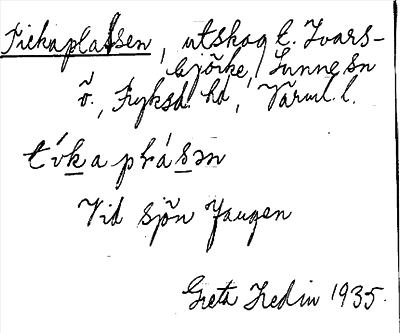 Piekaplassen, utskog t. Ivars-
björke, Sunne sn
ö., Fryksd. hd, Värml. l.
tíka plásən
Vid sjön
Greta Hedin 1935.